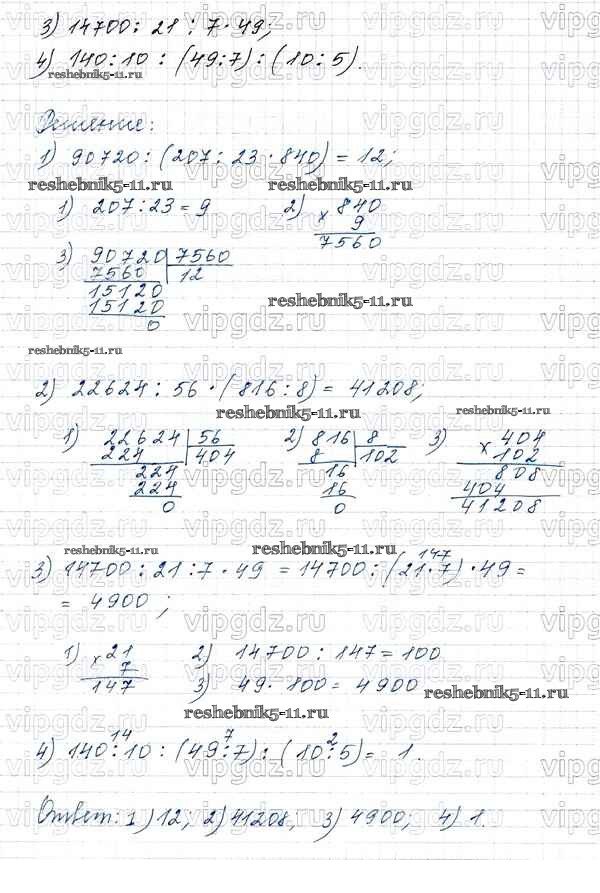 3) 14700 : 21 : 7 · 49;
4) 140 : 10 : (49 : 7) : (10 : 5).
reshebnik5-11.ru
Решение:
1) 90720 : (207 : 23 · 840) = 12;
reshebnik5-11.ru reshebnik5-11.ru
1) 207 : 23 = 9 2) × 840
9
7560
3) 90720 7560
7560 12
15120
15120
0
reshebnik5-11.ru
reshebnik5-11.ru
2) 22624 : 56 · (816 : 8) = 41208;
reshebnik5-11.ru reshebnik5-11.ru
1) 22624 56 2) 816 8 3) × 404
224 404 8 102 102
224 16 808
224 16 404
0 0 41208
reshebnik5-11.ru reshebnik5-11.ru
147
3) 14700 : 21 : 7 · 49 = 14700 : (21 · 7) · 49 =
= 4900;
1) × 21 2) 14700 : 147 = 100
7
147 3) 49 · 100 = 4900
reshebnik5-11.ru
reshebnik5-11.ru
14 7 2
4) 140 : 10 : (49 : 7) : (10 : 5) = 1.
Ответ: 1) 12; 2) 41208; 3) 4900; 4) 1.
vipgdz.ru